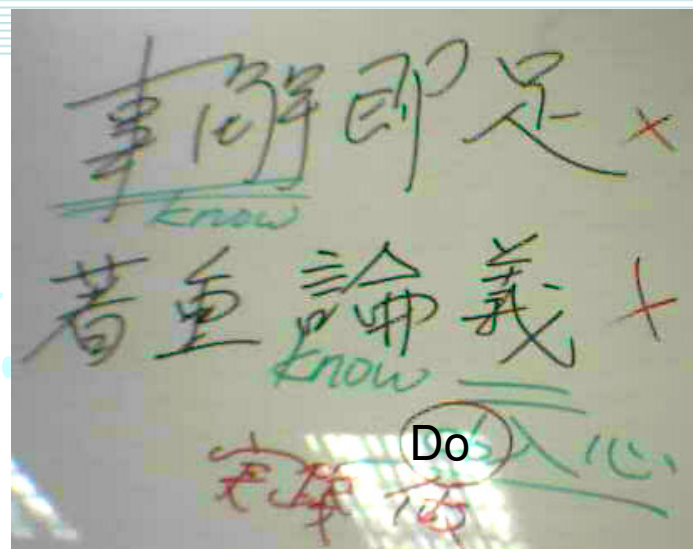 事解即足 ×
know
著重論義 ×
know
Do 入心